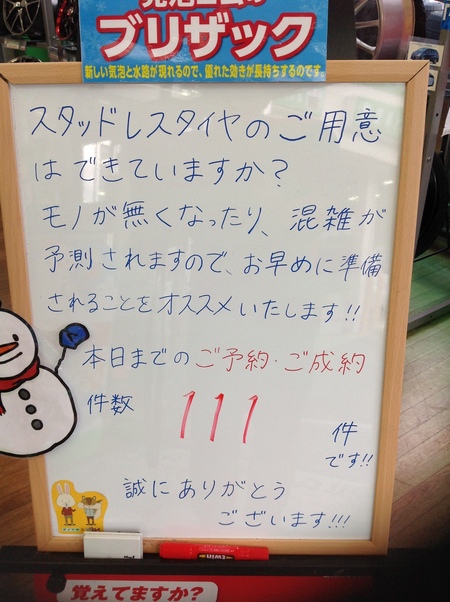 ブリザック
新しい気泡と水路が現れるので、優れた効きが長持ちするのです。
スタッドレスタイヤのご用意
はできていますか?
モノが無くなったり、混雑が
予測されますので、お早めに準備
されることをオススメいたします!!
本日までのご予約・ご成約
件数 111 件
です!!
誠にありがとう
ございます!!!
覚えてますか?